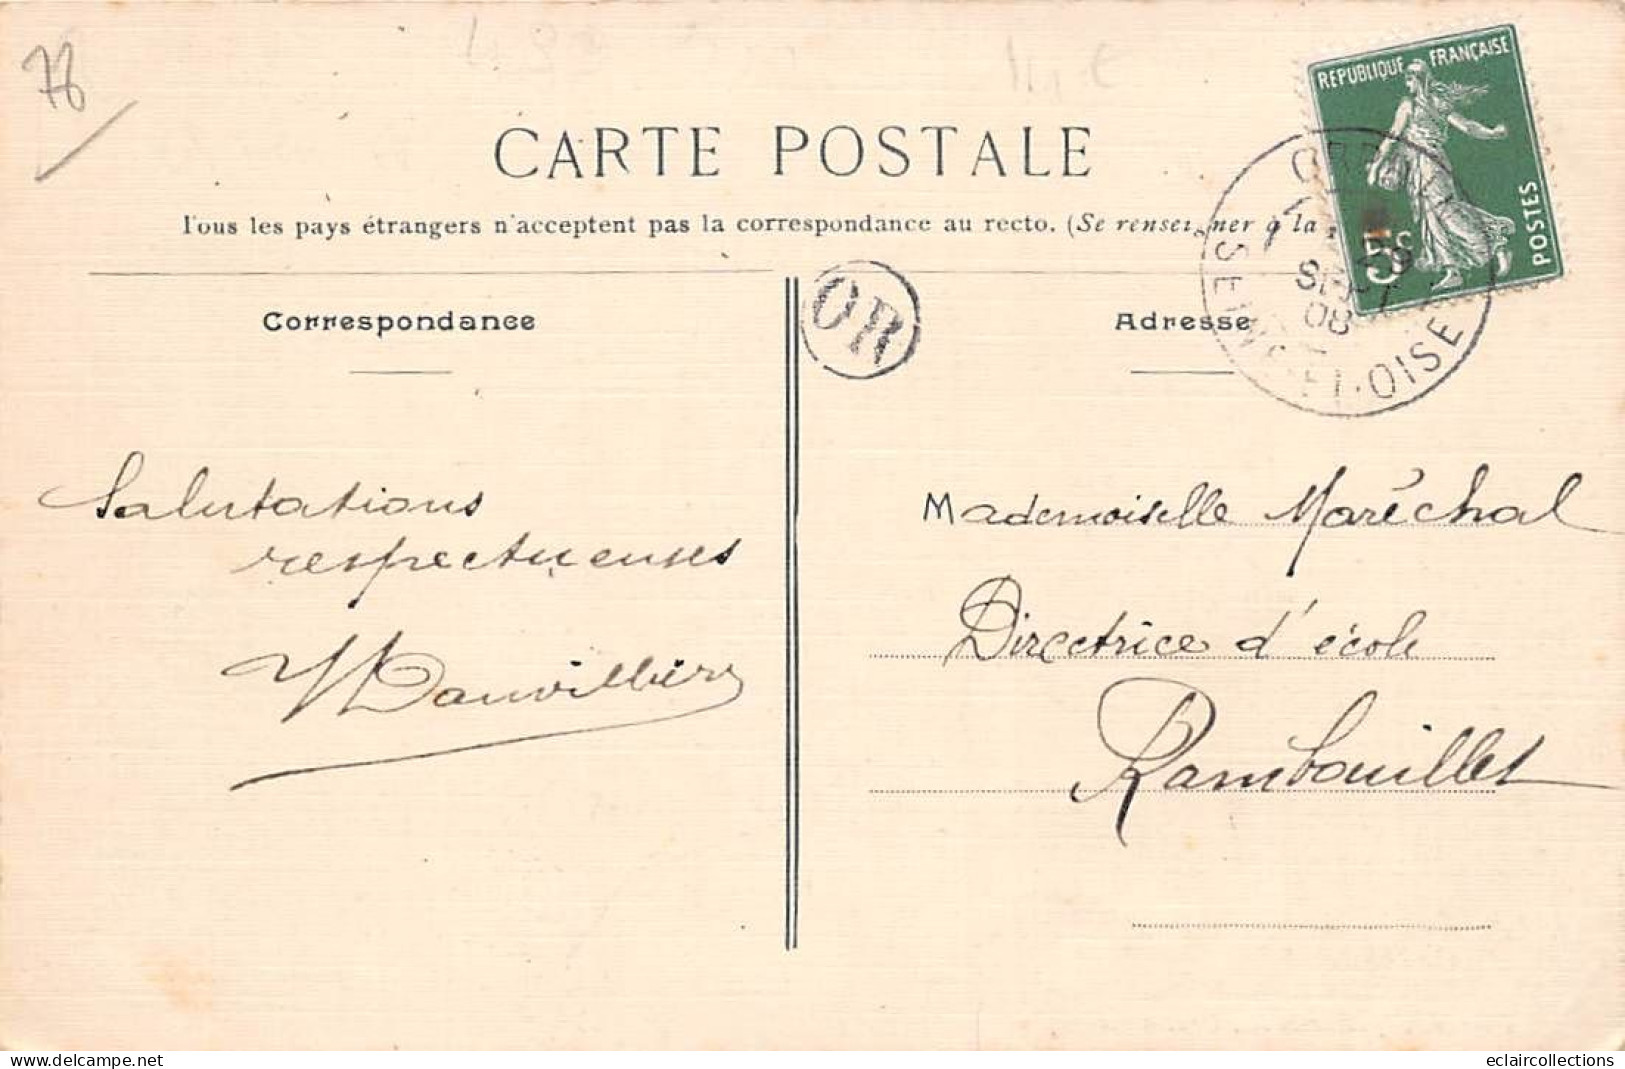 78
CARTE POSTALE
Tous les pays étrangers n'acceptent pas la correspondance au recto. (Se renseigner à la
REPUBLIQUE FRANÇAISE
POSTES
5
SEPT
08
SEINE-ET-OISE
OR
Correspondance
Adresse
Salutations
respectueuses
Mademoiselle Maréchal
Directrice d'école
Rambouillet
www.delcampe.net
eclaircollections